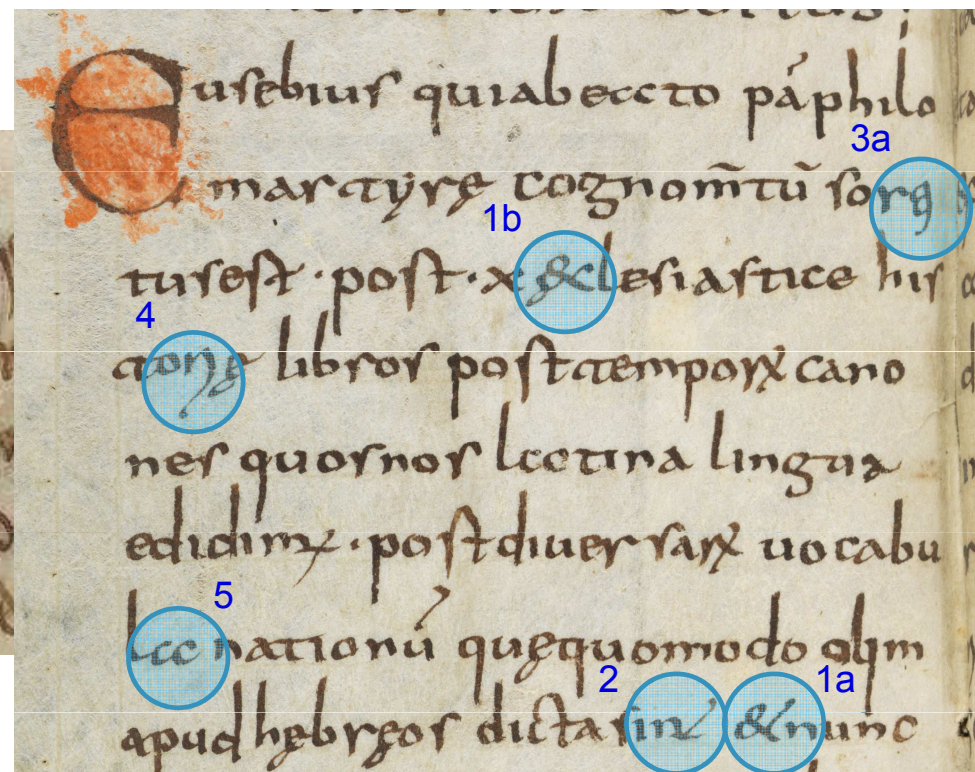 Eusebius quiabeato pāphilo
3a
martyrę cognom̄tū sorti
1b
tusest · post · x &clesiastice his
4
torię libros posttemporꝝ cano
nes quosnos latina lingua
edidimꝰ · postdiuersarꝝ uocabu
5
la nationū quęquomodo olim
2 1a
apud hębręos dictasint &nunc